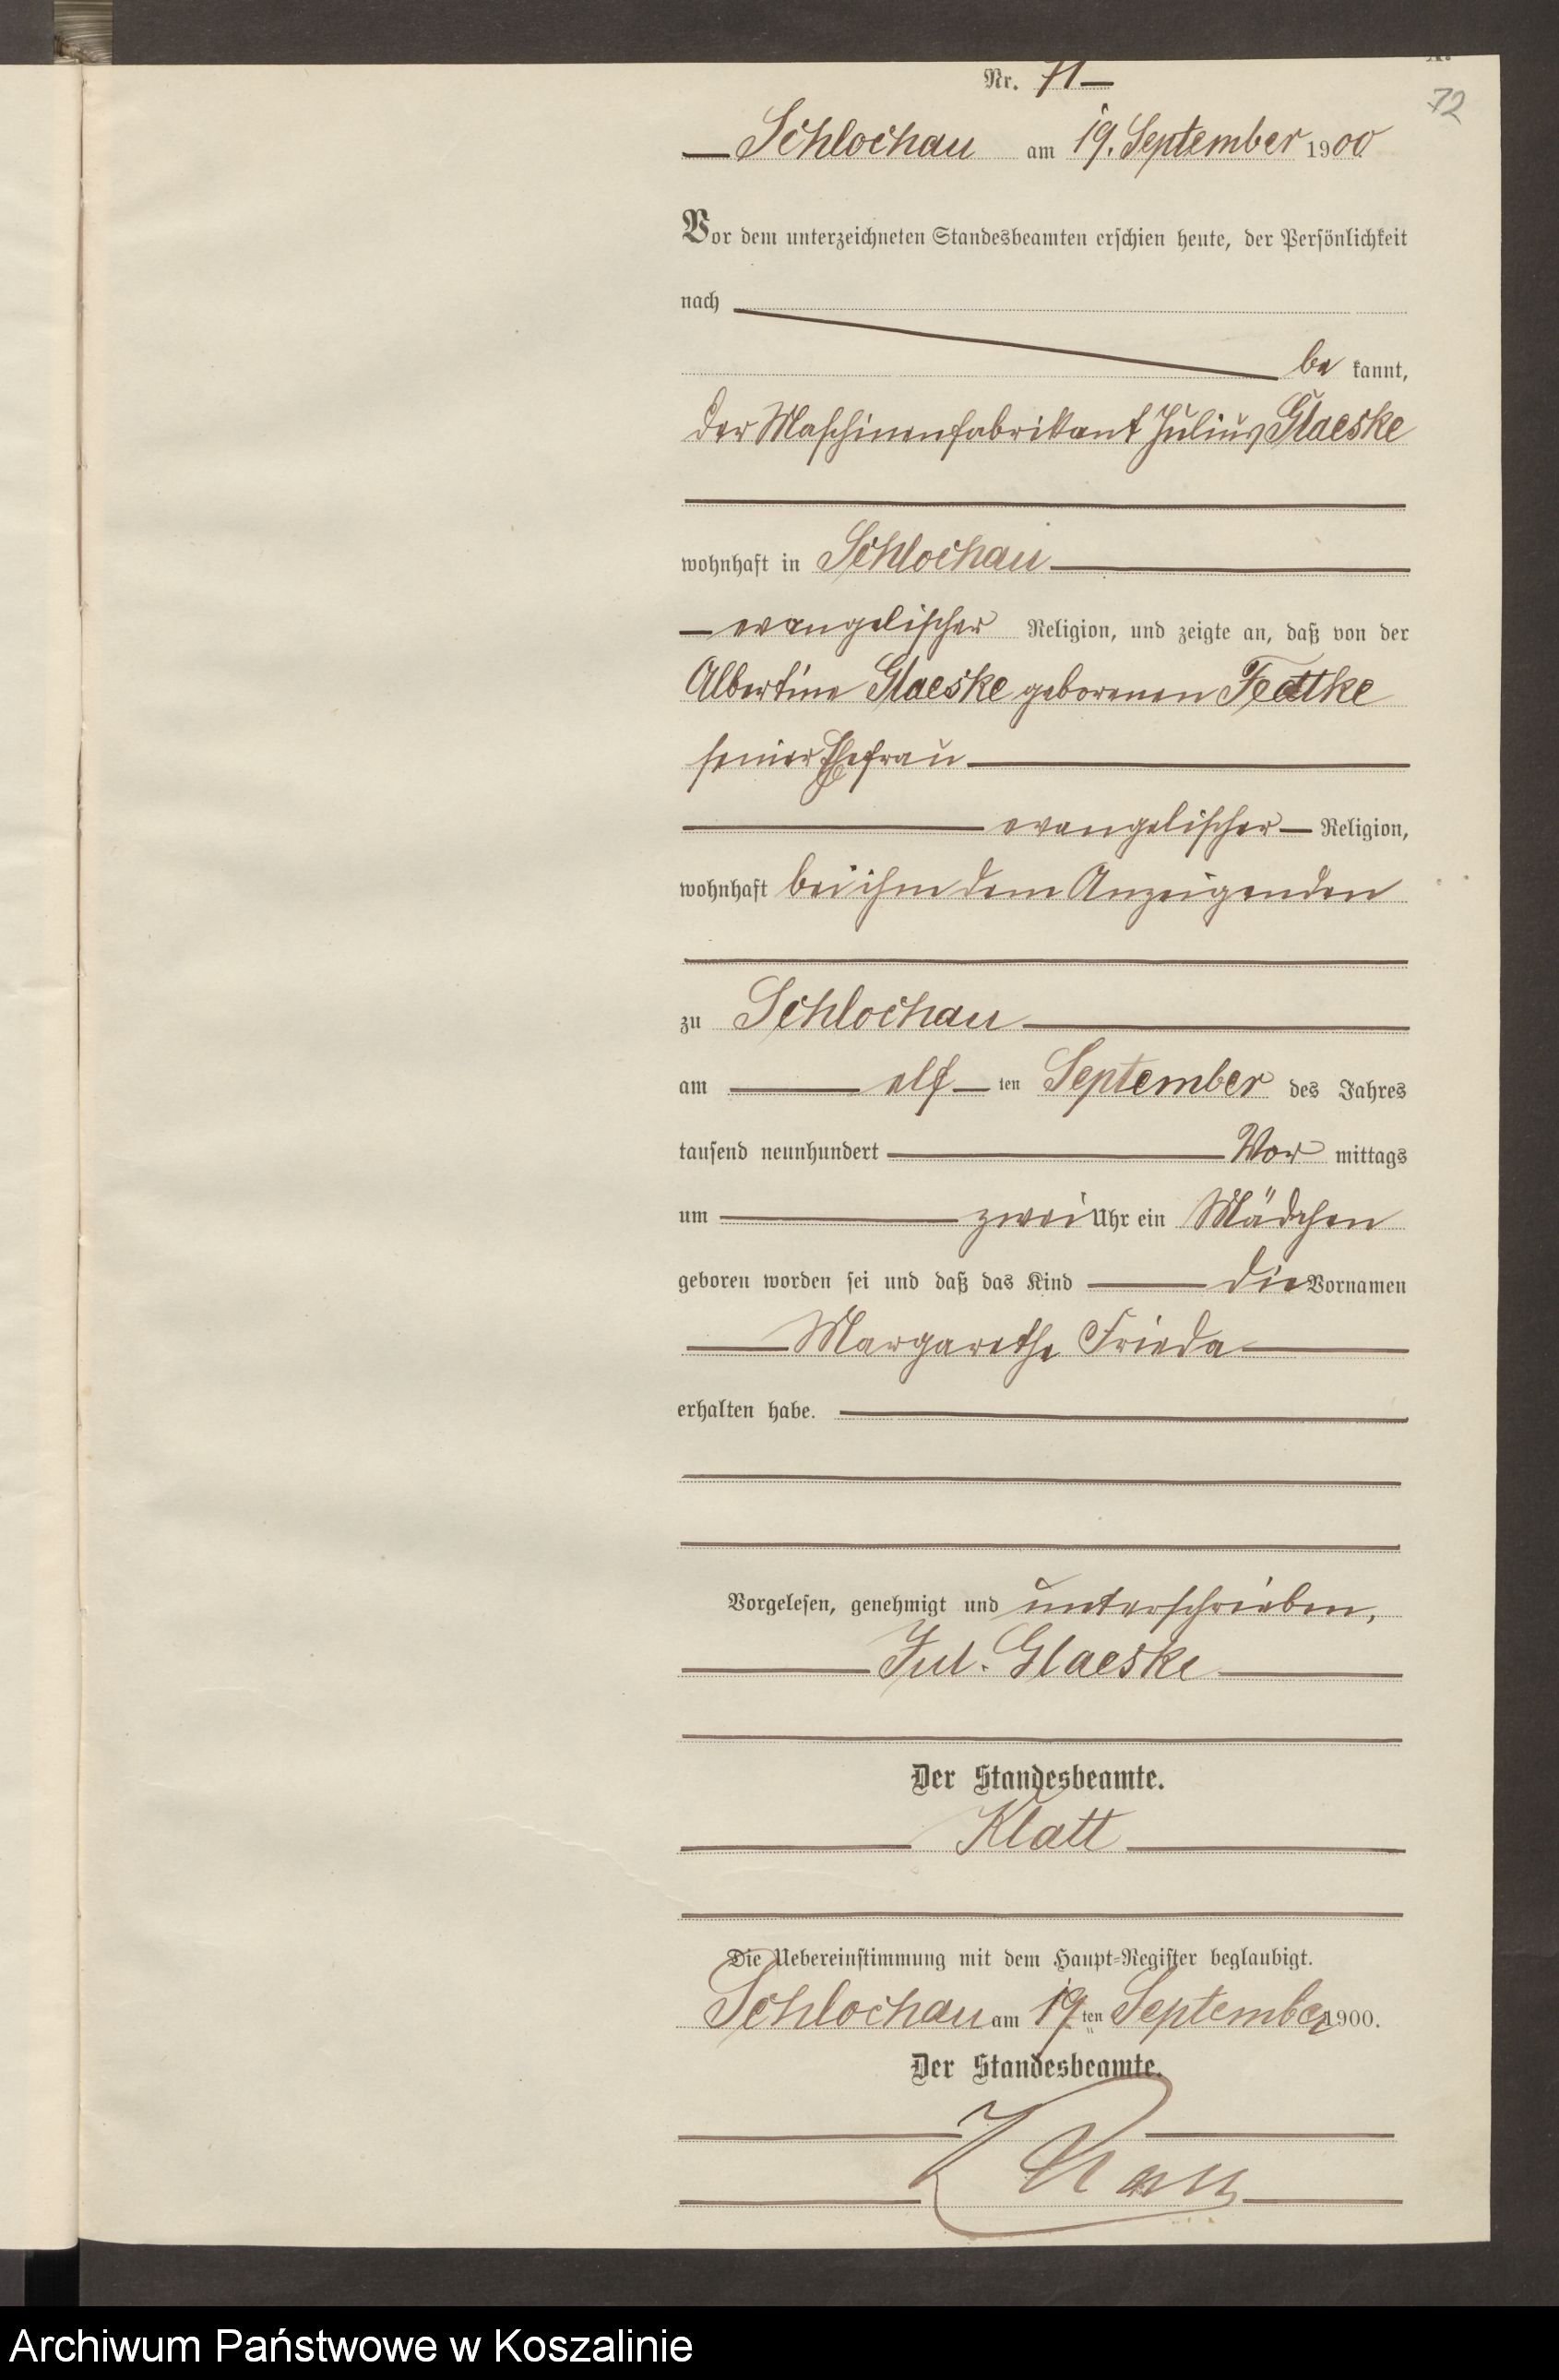 Nr. 71
72
Schlochau am 19. September 1900
Vor dem unterzeichneten Standesbeamten erschien heute, der Persönlichkeit
nach
be kannt,
der Maschinenfabrikant Julius Glaeske
wohnhaft in Schlochau
evangelischer Religion, und zeigte an, daß von der
Albertine Glaeske geborenen Fedtke
seiner Ehefrau
evangelischer Religion,
wohnhaft bei ihm dem Anzeigenden
zu Schlochau
am elf ten September des Jahres
tausend neunhundert Vor mittags
um zwei Uhr ein Mädchen
geboren worden sei und daß das Kind die Vornamen
Margarethe Frieda
erhalten habe.
Vorgelesen, genehmigt und unterschrieben,
Jul. Glaeske
Der Standesbeamte.
Klatt
Die Uebereinstimmung mit dem Haupt-Register beglaubigt.
Schlochau am 19 ten September 1900.
Der Standesbeamte.
Archiwum Państwowe w Koszalinie